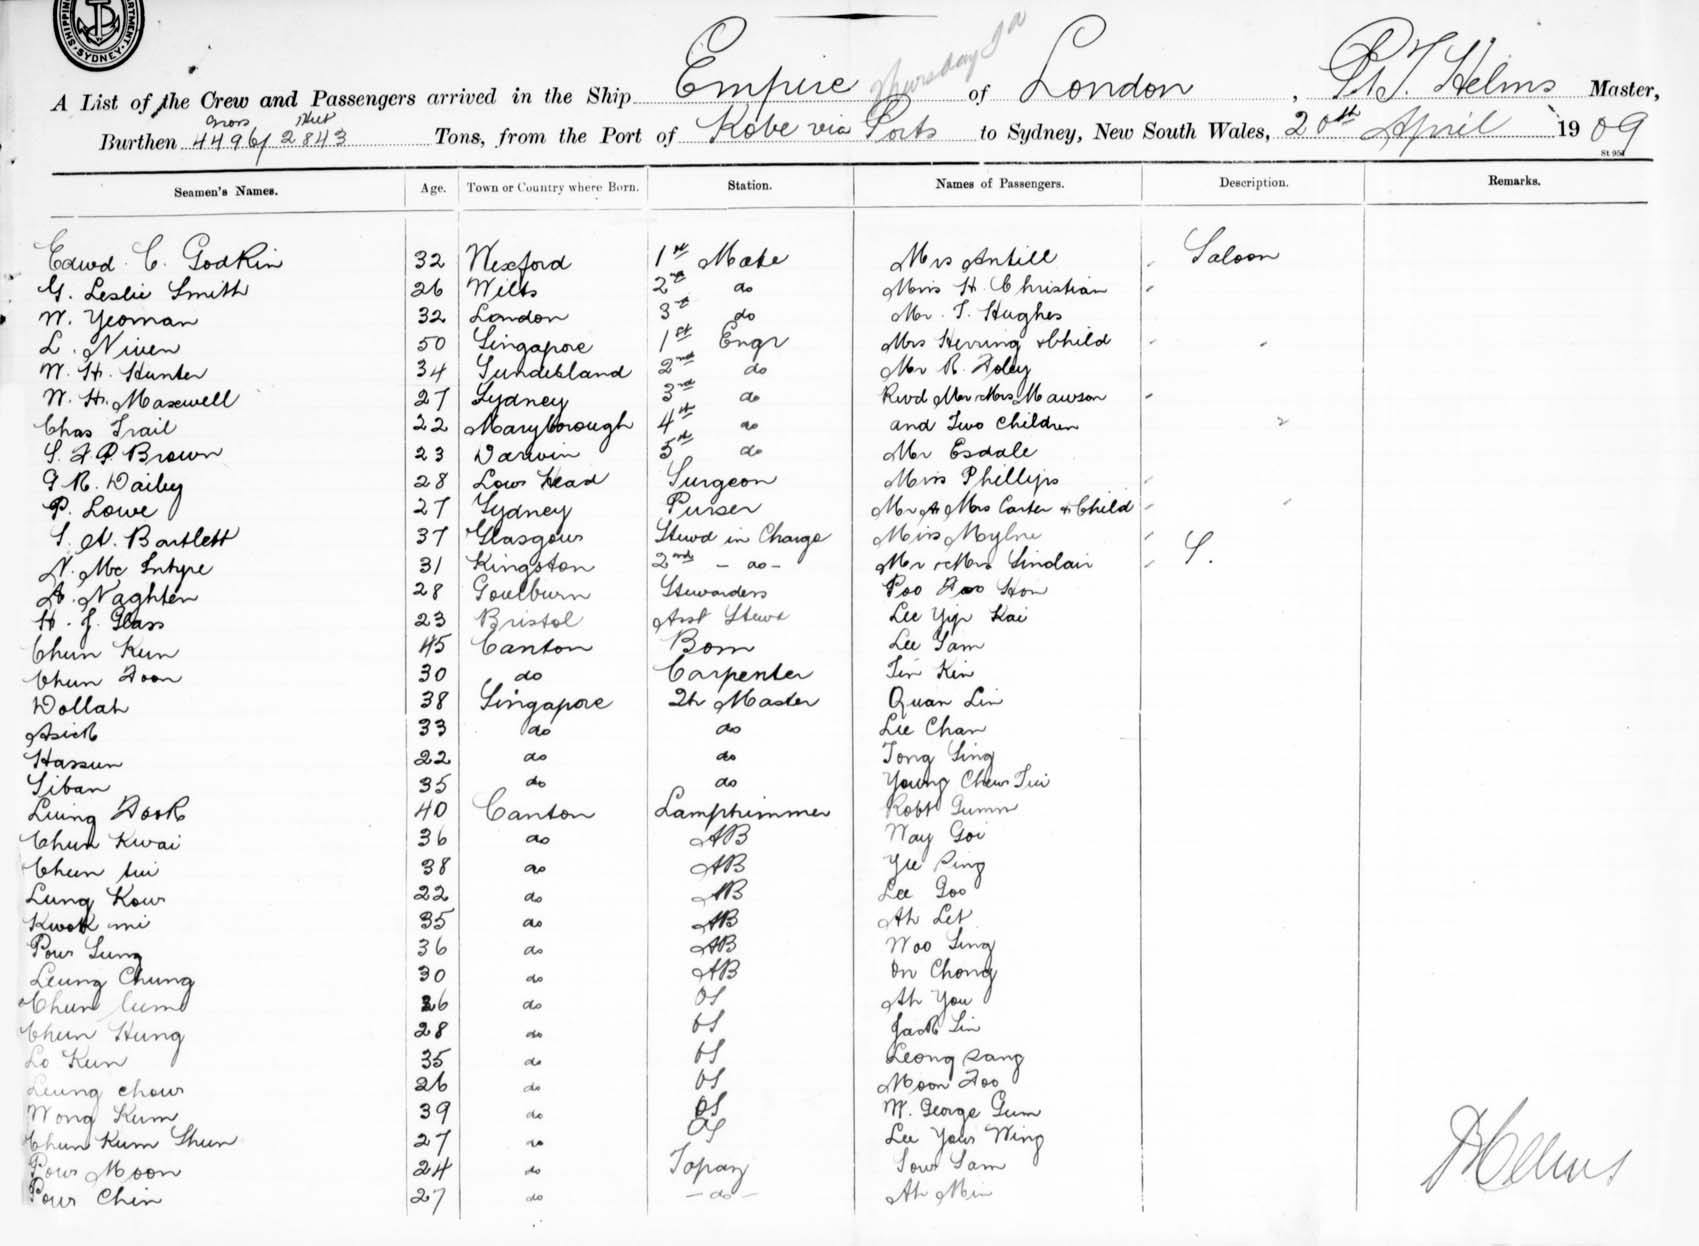 SHIPPING DEPARTMENT. SYDNEY.
Thursday
A List of the Crew and Passengers arrived in the Ship Empire of London, P.T. Helms Master,
Gross Nett
Burthen 4496/2843 Tons, from the Port of Kobe via Ports to Sydney, New South Wales, 20th April 1909
St 951
Seamen's Names. Age. Town or Country where Born. Station. Names of Passengers. Description. Remarks.
Edwd. C. Godkin 32 Wexford 1st Mate Mrs Antill Saloon
G. Leslie Smith 26 Wilts 2nd do Miss H. Christian
W. Yeoman 32 London 3rd do Mr. T. Hughes
L. Niven 50 Singapore 1st Engr Mrs Herring & Child
W. H. Hunter 34 Sunderland 2nd do Mr R. Foley
W. H. Maxwell 27 Sydney 3rd do Revd Mr & Mrs Mawson
Chas Trail 22 Maryborough 4th do and Two Children
S. F. P. Brown 23 Darwin 5th do Mr Esdale
G R. Dailey 28 Low Head Surgeon Miss Phillips
P. Lowe 27 Sydney Purser Mr & Mrs Carter & Child
S. A. Bartlett 37 Glasgow Stewd in Charge Miss Mylne
N. Mc Intyre 31 Kingston 2nd - do - Mr & Mrs Sinclair S.
A. Naghten 28 Goulburn Stewardess Poo Foo Hon
H. J. Glass 23 Bristol Asst Stewd Lee Yip Kai
Chun Kun 45 Canton Bosn Lee Sam
Chun Foon 30 do Carpenter Tin Kin
Dollah 38 Singapore Qr Master Quan Lin
Asick 33 do do Lee Chan
Hassun 22 do do Tong Sing
Siban 35 do do Young Chew Tui
Luing Fook 40 Canton Lamptrimmer Robt Gumm
Chun Kwai 36 do AB Way Goi
Chun Sui 38 do AB Yee Ping
Lung Kow 22 do AB Lee Goo
Kwok mi 35 do AB Ah Let
Pow Sung 36 do AB Woo Sing
Leung Chung 30 do AB On Chong
Chun Lum 26 do OS Ah You
Chun Hung 28 do OS Jack Lin
Lo Kun 35 do OS Leong Sang
Leung chow 26 do OS Moon Foo
Wong Kum 39 do OS W. George Gum
Chun Kum Shun 27 do OS Lee Yow Wing
Pow Moon 24 do Topay Sow Sam
Pow Chin 27 do - do - Ah Min
P Helms